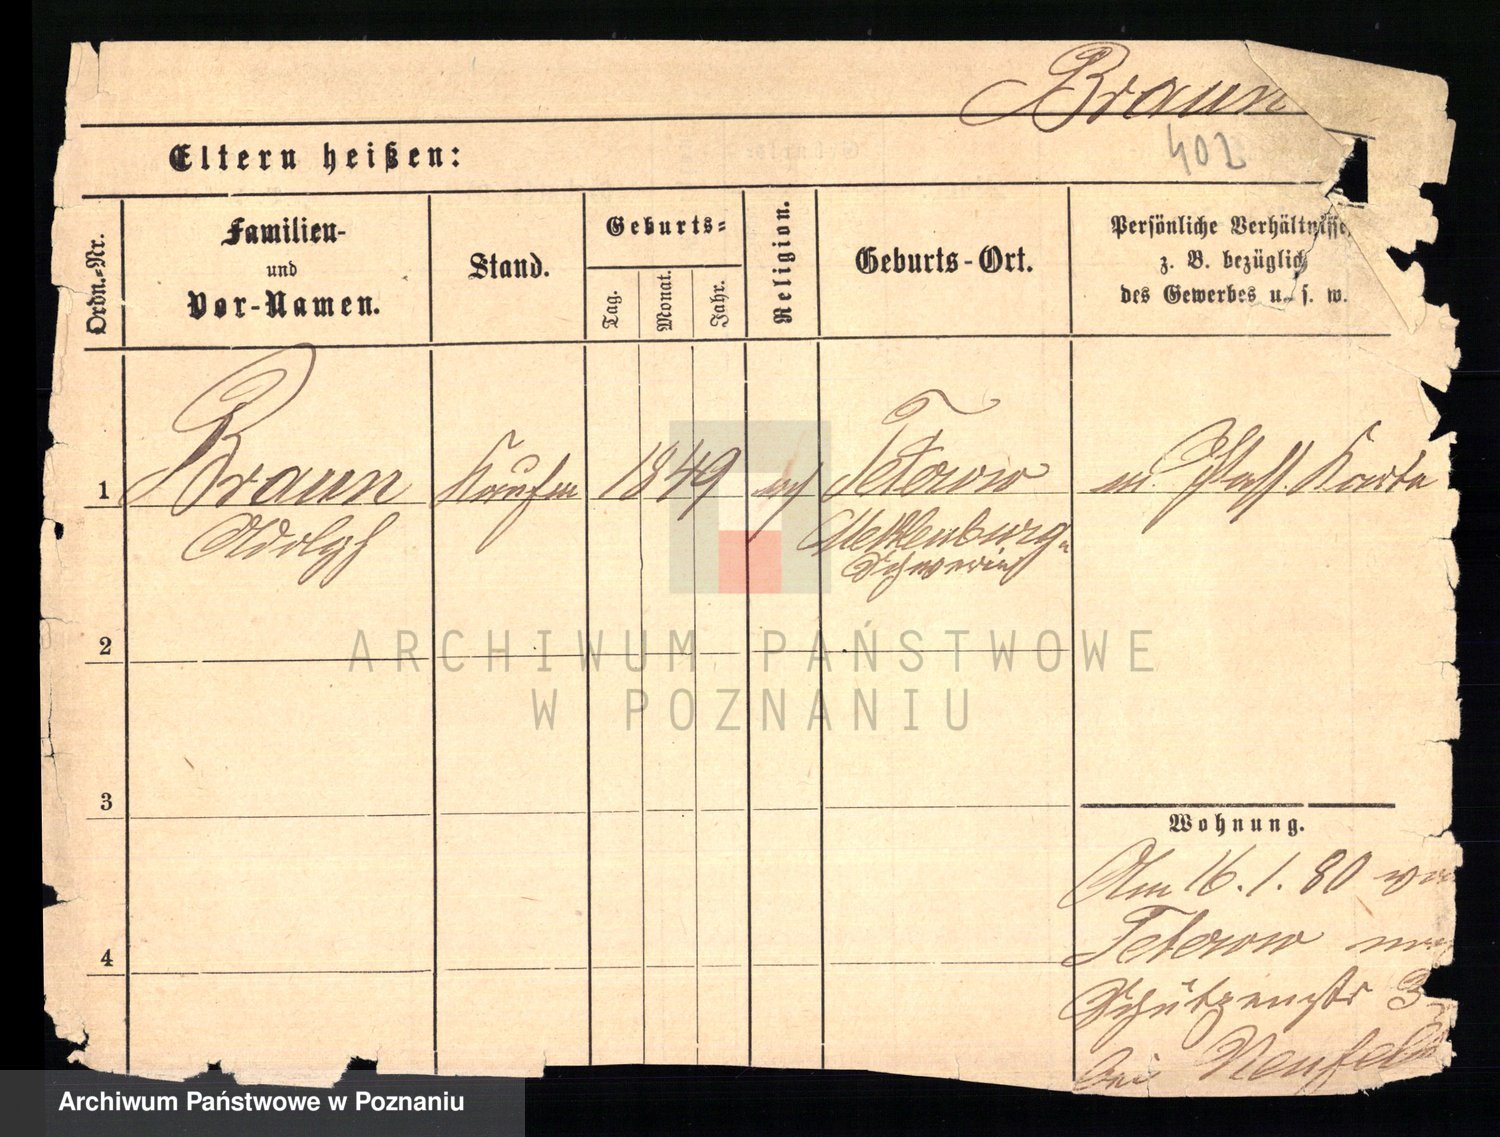 Braun
402
Eltern heißen:
Ordn.-Nr.
Familien-
und
Vor-Namen.
Stand.
Geburts-
Tag.
Monat.
Jahr.
Religion.
Geburts-Ort.
Persönliche Verhältnisse,
z. B. bezüglich
des Gewerbes u. s. w.
1
Braun
Adolph
Kaufm
1849
Teterow
Mecklenburg-
Schwerin
m. Paß Karte
2
3
4
Wohnung.
Am 16.1.80 von
Teterow
Schützenstr 3
bei Neufeld
ARCHIWUM PAŃSTWOWE
W POZNANIU
Archiwum Państwowe w Poznaniu